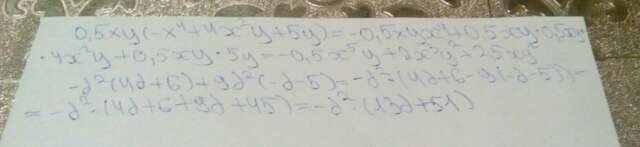 0,5xy(-x⁴+4x²y+5y)=-0,5xyx⁴+0,5xy·0,5xy
·4x²y+0,5xy·5y=-0,5x⁵y+2x³y²+2,5xy²
-d²(4d+6)+9d²(-d-5)=-d²·(4d+6-9(-d-5))=
=-d²·(4d+6+9d+45)=-d²·(13d+51)